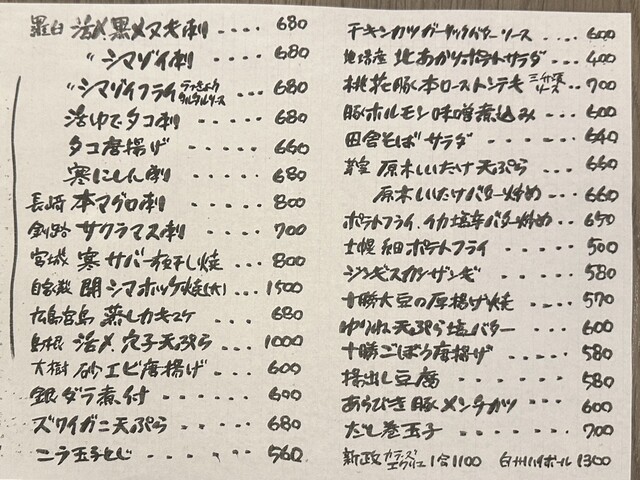 羅臼 活〆黒メヌキ刺 .... 680
〃 シマゾイ刺 .... 680
〃 シマゾイフライ らっきょうタルタルソース .... 680
活ゆでタコ刺 ..... 680
タコ唐揚げ .... 660
寒にしん刺 .... 680
長崎 本マグロ刺 .... 800
釧路 サクラマス刺 .... 700
宮城 寒サバ一夜干し焼 ... 800
自家製 開シマホッケ焼(大) ... 1500
広島宮島 蒸しカキ3ケ .... 680
島根 活〆穴子天ぷら .... 1000
大樹 砂エビ唐揚げ .... 600
銀ダラ煮付 ...... 600
ズワイガニ天ぷら ...... 680
ニラ玉子とじ ...... 560
チキンカツ ガーリックバターソース ... 600
地場産 北あかりポテトサラダ .... 400
桃花豚 本ローストンテキ ソース .. 700
豚ホルモン味噌煮込み .... 600
田舎そばサラダ ..... 640
原木しいたけ天ぷら .... 660
原木しいたけバター炒め .... 660
ポテトフライ、イカ塩辛バター炒め ... 650
士幌 細ポテトフライ ..... 500
ジンギスカンザンギ ..... 580
十勝大豆の厚揚げ焼 .... 570
ゆりね天ぷら塩バター .... 600
十勝ごぼう唐揚げ ..... 580
揚出し豆腐 ...... 580
あらびき豚メンチカツ .... 600
だし巻玉子 ...... 700
新政 カラーズエクリュ 1合1100 白州ハイボール 1300